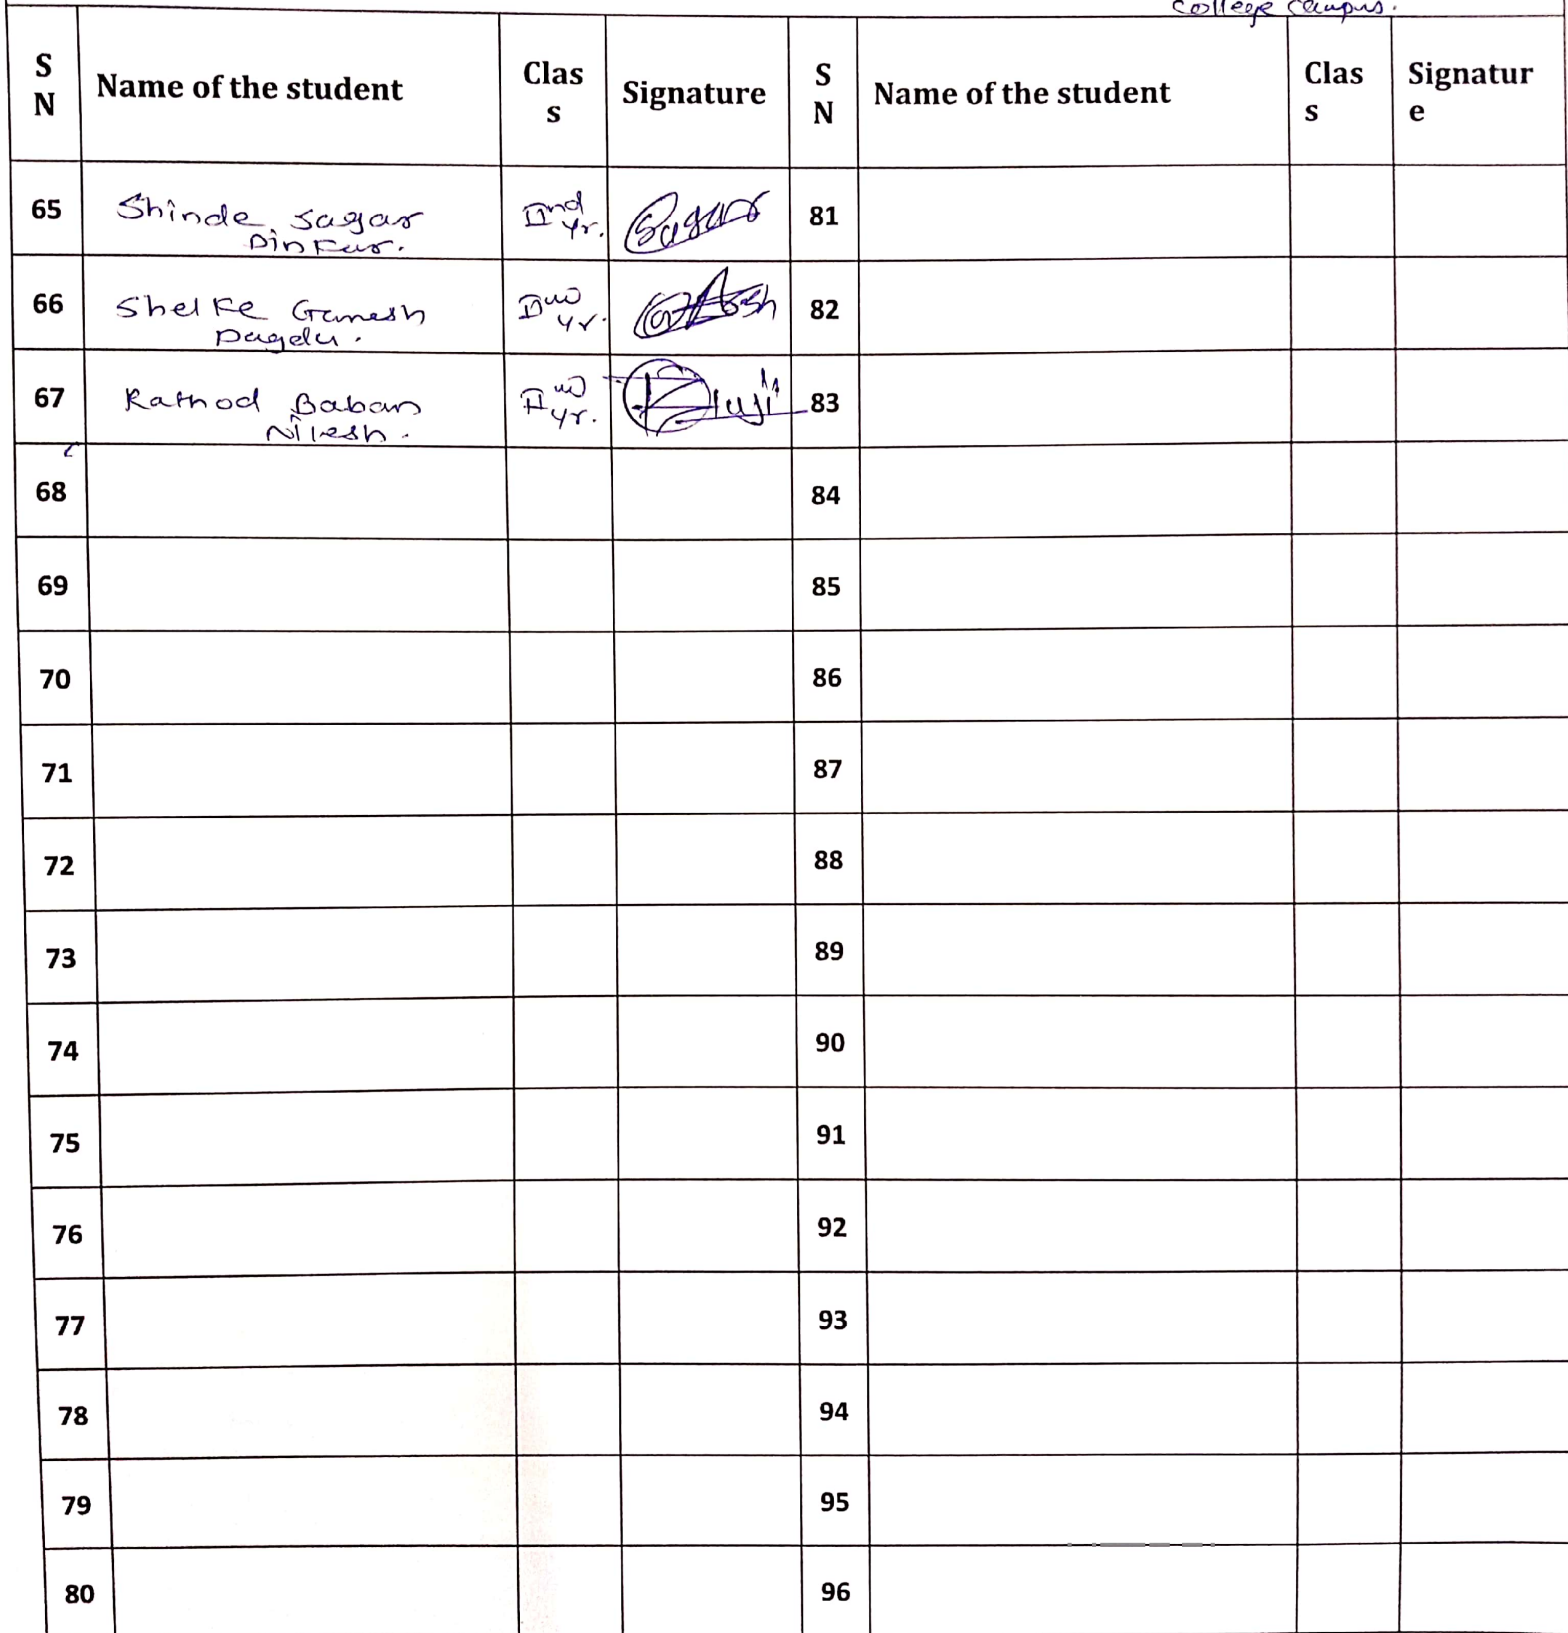 College Campus.
S N Name of the student Clas s Signature S N Name of the student Clas s Signatur e
65 Shinde Sagar Dinkar. IInd yr. Sagar 81
66 Shelke Ganesh Dagdu. IInd yr. 82
67 Rathod Baban Nilesh. IInd yr. 83
68 84
69 85
70 86
71 87
72 88
73 89
74 90
75 91
76 92
77 93
78 94
79 95
80 96